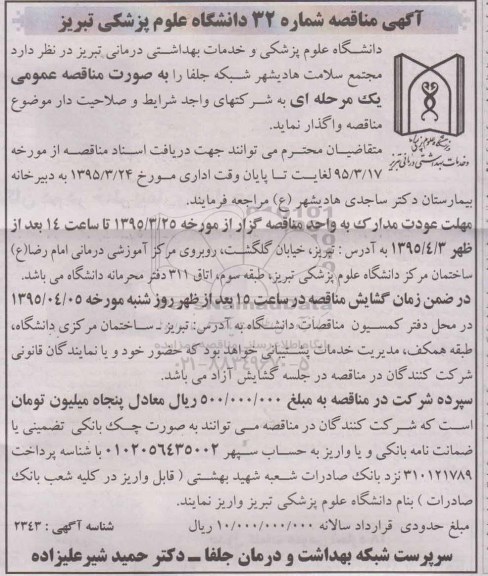 آگهی مناقصه شماره ۳۲ دانشگاه علوم پزشکی تبریز
دانشگاه علوم پزشکی و خدمات بهداشتی درمانی تبریز در نظر دارد
مجتمع سلامت هادیشهر شبکه جلفا را به صورت مناقصه عمومی
یک مرحله ای به شرکتهای واجد شرایط و صلاحیت دار موضوع
مناقصه واگذار نماید.
دانشگاه علوم پزشکی
و خدمات بهداشتی درمانی تبریز
متقاضیان محترم می توانند جهت دریافت اسناد مناقصه از مورخه
۹۵/۳/۱۷ لغایت تا پایان وقت اداری مورخ ۱۳۹۵/۳/۲۴ به دبیرخانه
بیمارستان دکتر ساجدی هادیشهر (ع) مراجعه فرمایند.
مهلت عودت مدارک به واحد مناقصه گزار از مورخه ۱۳۹۵/۳/۲۵ تا ساعت ۱۴ بعد از
ظهر ۱۳۹۵/۴/۳ به آدرس : تبریز، خیابان گلگشت، روبروی مرکز آموزشی درمانی امام رضا(ع)
ساختمان مرکز دانشگاه علوم پزشکی تبریز، طبقه سوم، اتاق ۳۱۱ دفتر محرمانه دانشگاه می باشد.
در ضمن زمان گشایش مناقصه در ساعت ۱۵ بعد از ظهر روز شنبه مورخه ۱۳۹۵/۰۴/۰۵
در محل دفتر کمسیون مناقصات دانشگاه به آدرس: تبریز ـ ساختمان مرکزی دانشگاه،
طبقه همکف، مدیریت خدمات پشتیبانی خواهد بود که حضور خود و یا نمایندگان قانونی
شرکت کنندگان در مناقصه در جلسه گشایش آزاد می باشد.
سپرده شرکت در مناقصه به مبلغ ۵۰۰/۰۰۰/۰۰۰ ریال معادل پنجاه میلیون تومان
است که شرکت کنندگان در مناقصه می توانند به صورت چک بانکی تضمینی یا
ضمانت نامه بانکی و یا واریز به حساب سپهر ۰۱۰۲۰۵۶۴۳۵۰۰۲ با شناسه پرداخت
۳۱۰۱۲۱۷۸۹ نزد بانک صادرات شعبه شهید بهشتی ( قابل واریز در کلیه شعب بانک
صادرات ) بنام دانشگاه علوم پزشکی تبریز واریز نمایند.
مبلغ حدودی قرارداد سالانه ۱۰/۰۰۰/۰۰۰/۰۰۰ ریال شناسه آگهی : ۲۳۴۳
سرپرست شبکه بهداشت و درمان جلفا ـ دکتر حمید شیرعلیزاده